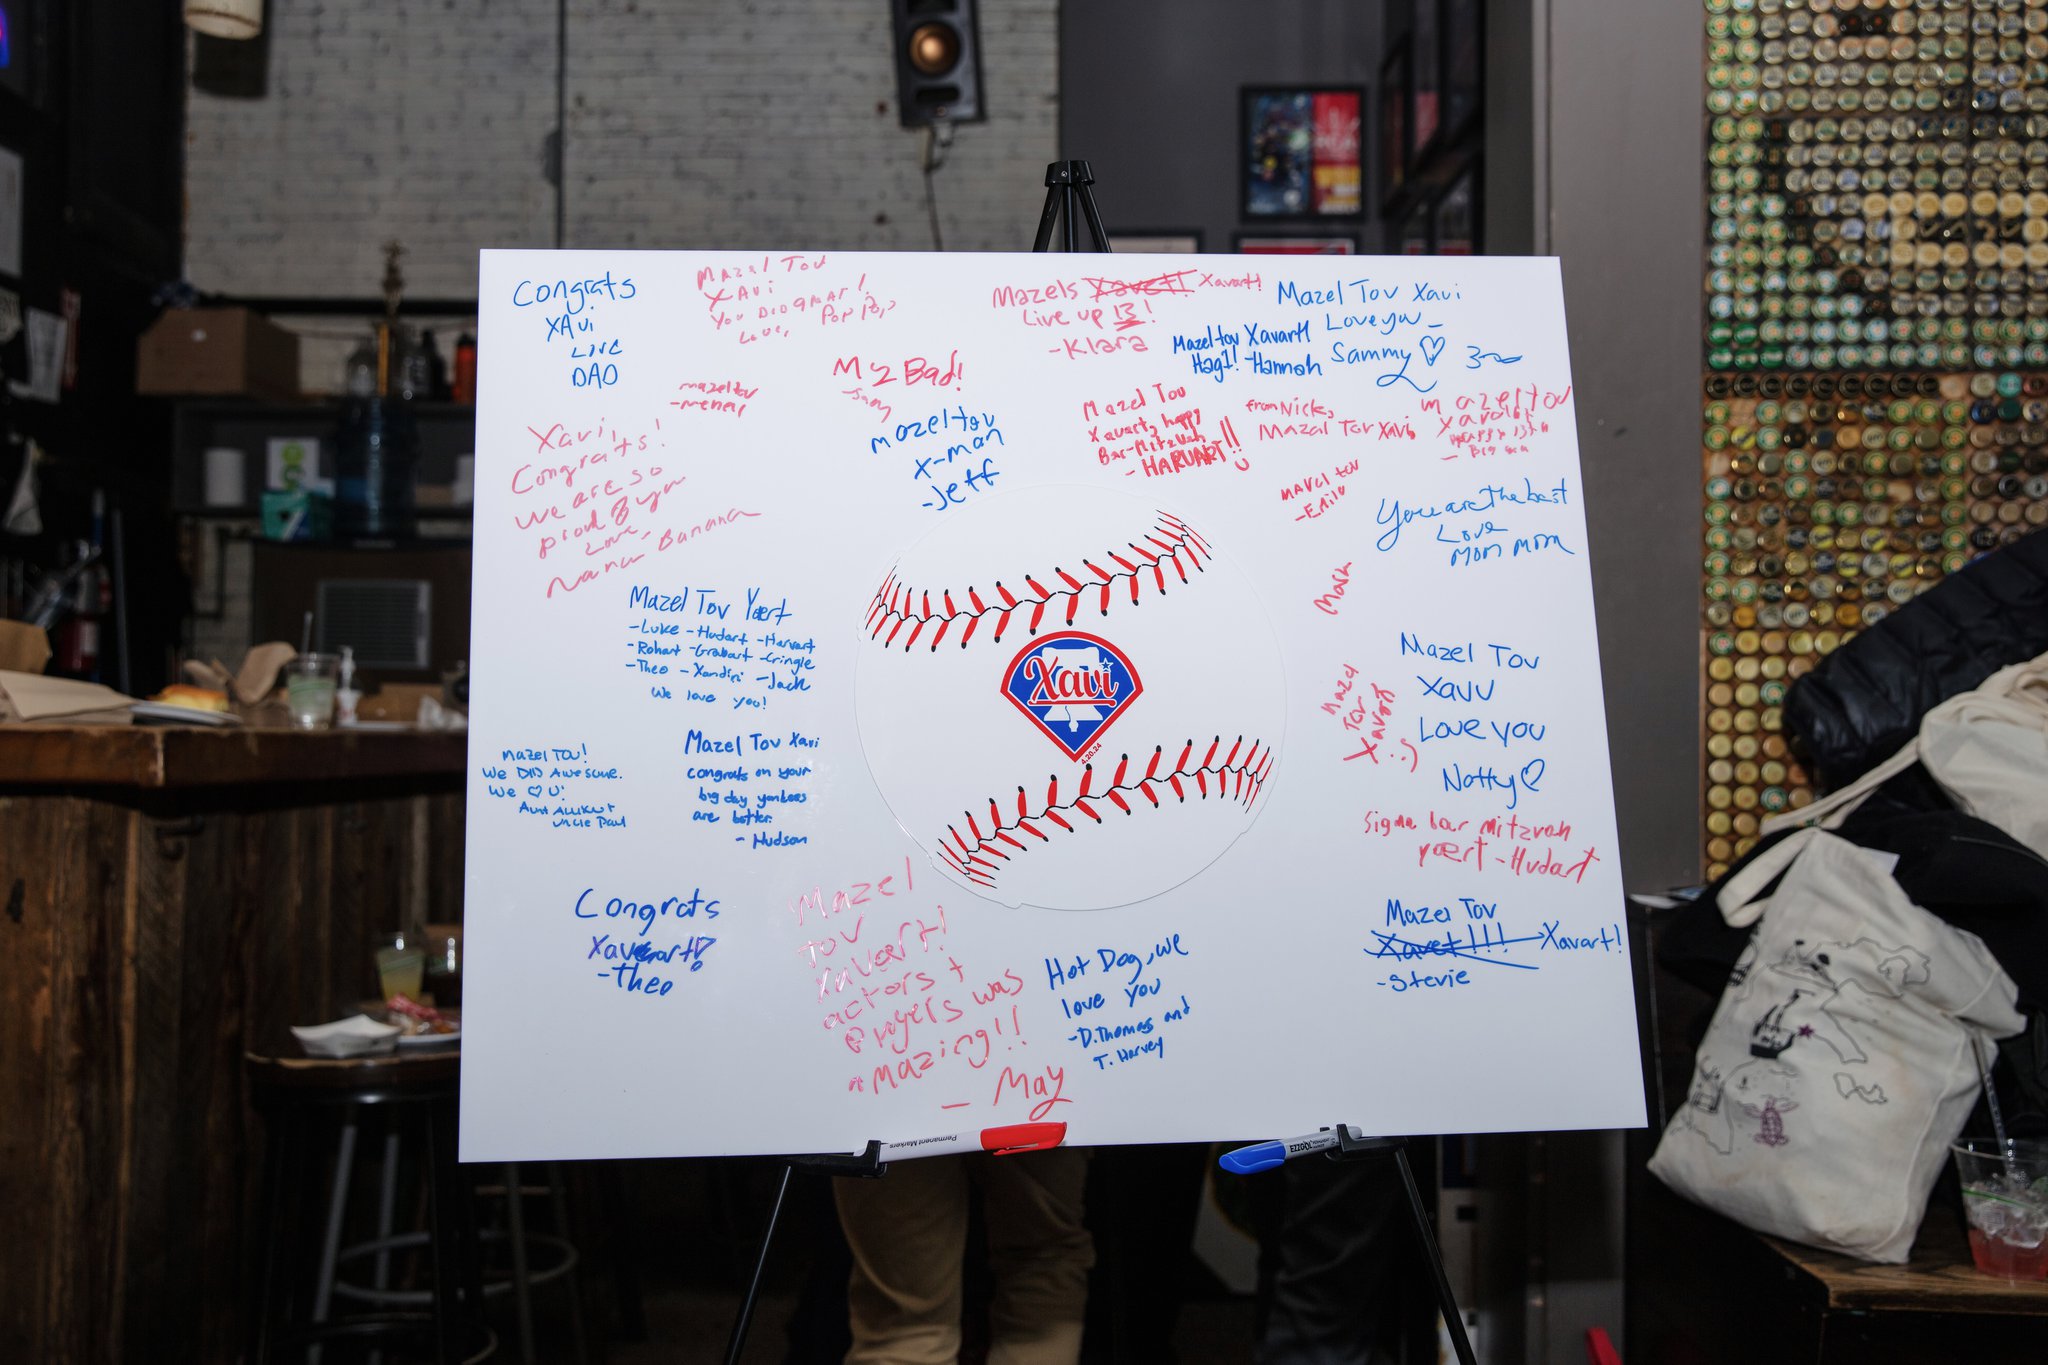 Congrats
XAvi
Love
DAD
Mazel Tov
XAvi
You DID GREAT!
Love, Pop pop
Mazels Xavet!! Xavart!
Live up 13!
-Klara
Mazel Tov Xavi
Love you -
Sammy
Mazel tov Xavart
-Hannah
My Bad!
mazel tov
Xavi,
Congrats!
we are so
proud of you
Love
Nana Banana
mazel tov
X-man
-Jeff
Mazel Tov
Xavart, happy
Bar-Mitzvah
- HARVART!!
from Nick,
Mazal Tov Xavi
mazel tov
mazel tov
-Emilu
You are the best
Love
Mom Mom
Mark
Mazel Tov Yaert
-Luke -Hudart -Harvart
-Rohart -Grabart -Cringle
-Theo -Xandini -Jack
We love you!
Xavi
4.20.24
Mazel
Tov
Xavart
:)
Mazel Tov
Xavu
Love you
Natty
Mazel Tov!
We DID Awesome.
We ♡ U!
Uncle Paul
Mazel Tov Xavi
congrats on your
big day yankees
are better.
- Hudson
Sigma bar mitzvah
yaert -Hudart
Congrats
Xavart!
-Theo
Mazel
tov
Xavart!
actors +
Players was
amazing!!
- May
Hot Dog, we
love you
-D.Thomas and
T. Harvey
Mazel Tov
Xavet!!! Xavart!
-Stevie
Permanent Markers